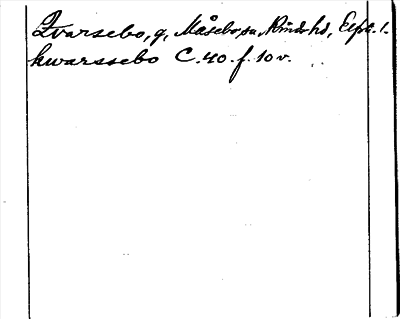 Qvarsebo, g, Måsebo, sn, Kinds hd, Elfsb. l.
kwarssebo C. 40. f. 10 v.